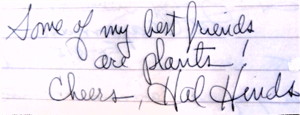 Some of my best friends
are plants!
Cheers, Hal Hinds